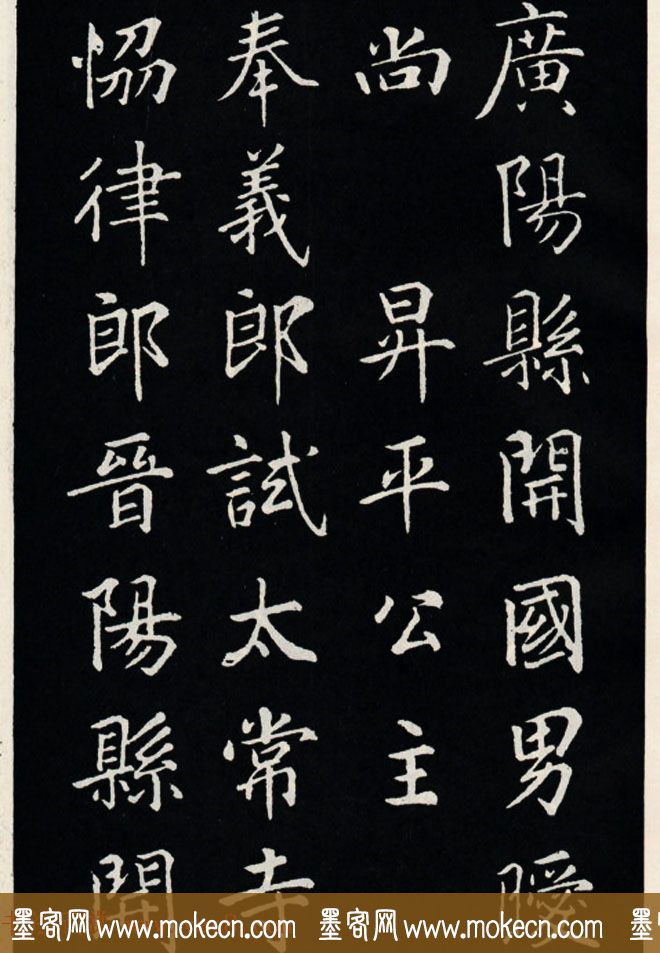 廣陽縣開國男曖
尚 昇平公主
奉義郎試太常寺
恊律郎晉陽縣開
墨客网 www.mokecn.com 墨客网 www.mokecn.com